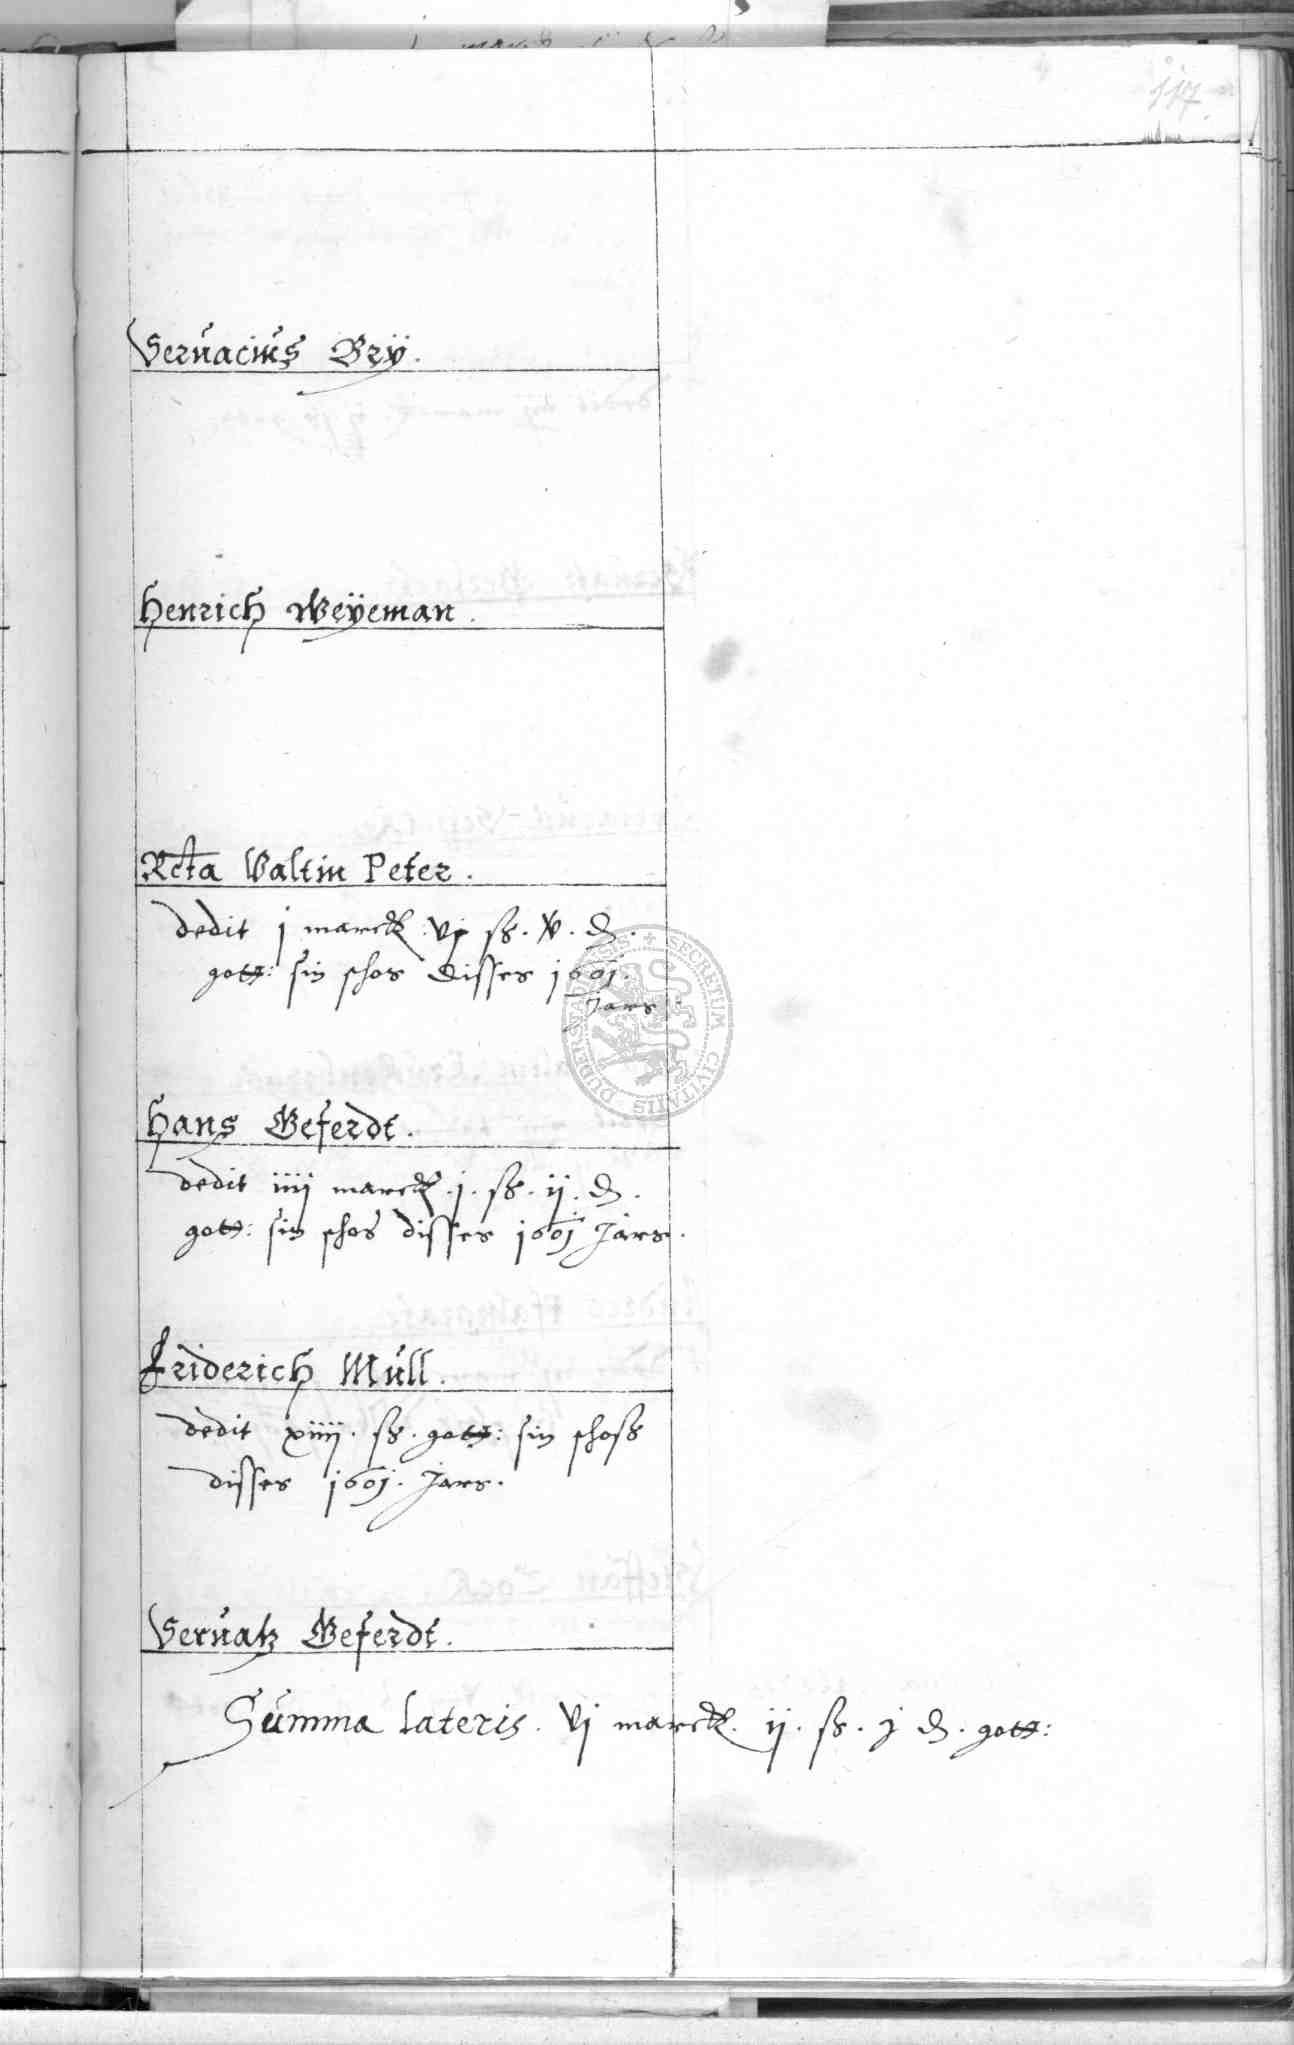 117
Servacius Bry.
Henrich Weÿeman.
Rcta Valtin Peter.
dedit j marck vj ß. v. d.
gott: sin schos disses 1601.
Jars.
Hans Geferdt.
dedit iiij marck. j. ß. ij. d.
gott: sin schos disses 1601 Jars.
Friderich Müll.
dedit xiiij. ß. gott: sin schoss
disses 1601. Jars.
Servatz Geferdt.
Summa lateris. vj marck. ij. ß. j d. gott:
SECRETUM CIVITATIS DUDERSTADIENSIS